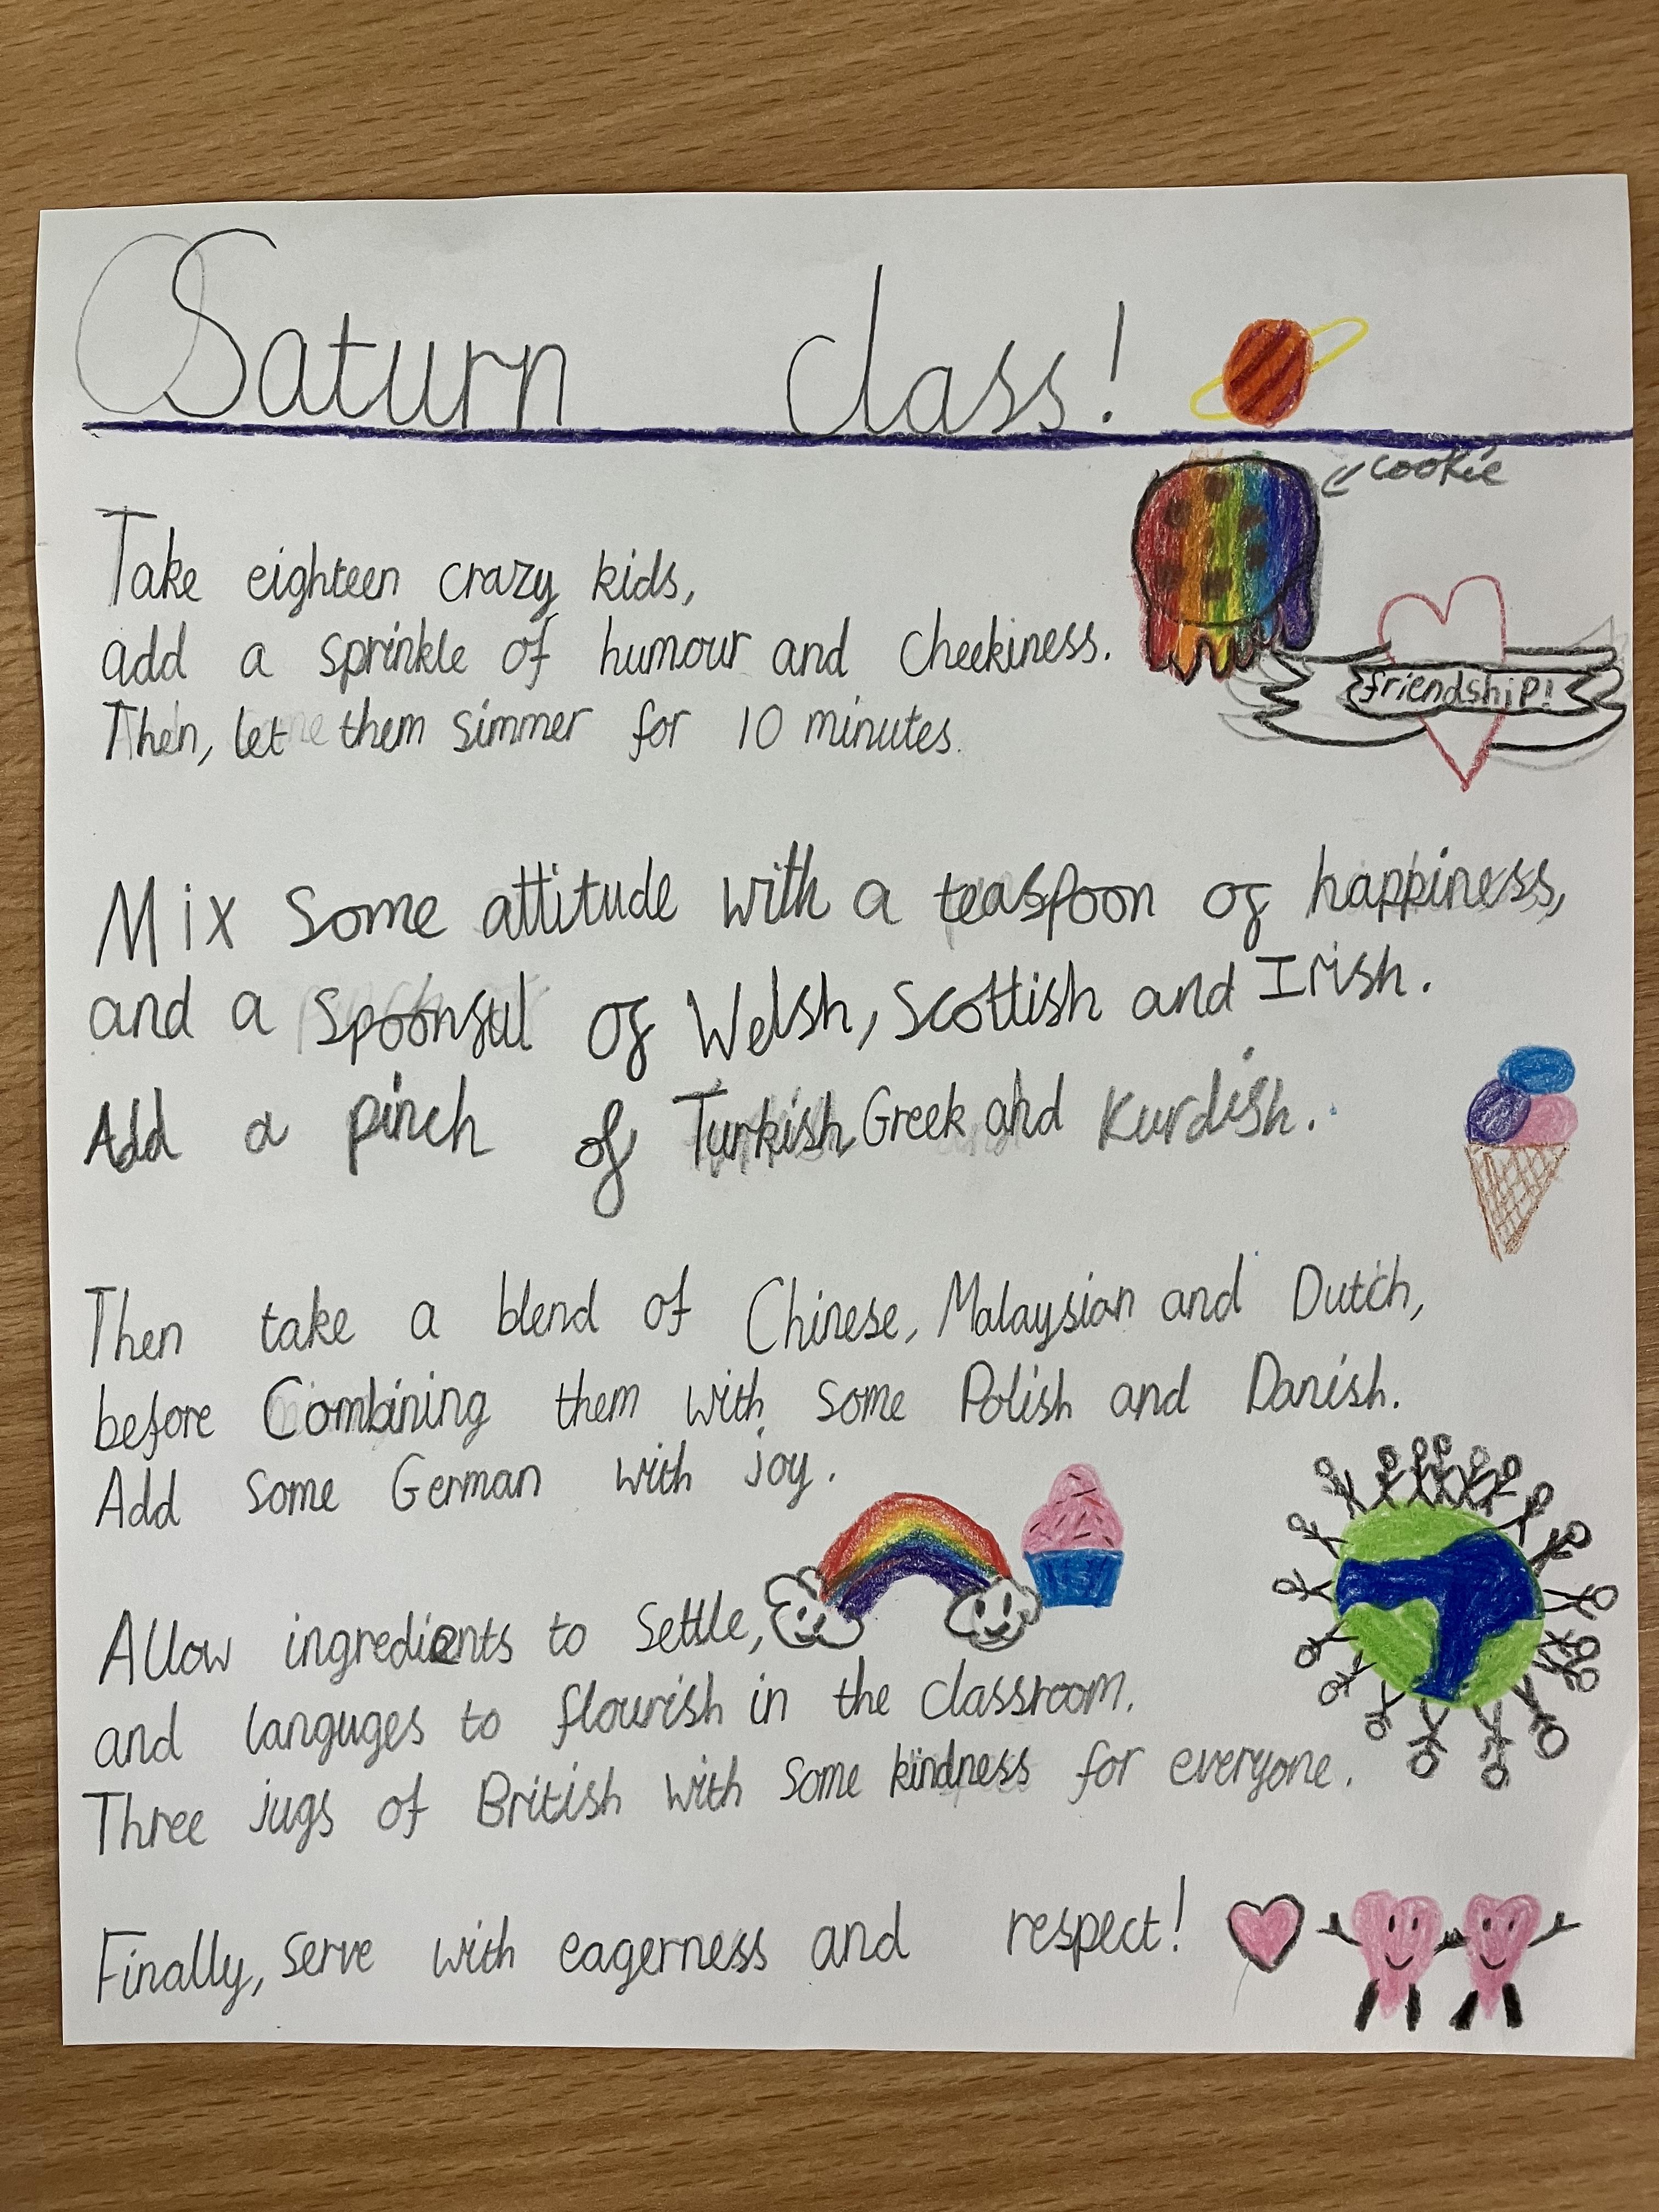 Saturn class!
cookie
Take eighteen crazy kids,
add a sprinkle of humour and cheekiness.
Then, let them simmer for 10 minutes.
friendship!
Mix some attitude with a teaspoon of happiness,
and a spoonful of Welsh, Scottish and Irish.
Add a pinch of Turkish Greek and Kurdish.
Then take a blend of Chinese, Malaysian and Dutch,
before Combining them with some Polish and Danish.
Add some German with joy.
Allow ingredients to settle,
and languges to flourish in the classroom.
Three jugs of British with some kindness for everyone.
Finally, serve with eagerness and respect!